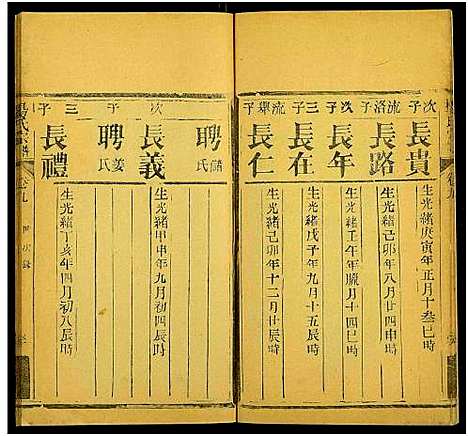 次子
長貴
生光緒庚寅年正月十叁巳時
流洛子
長路
生光緒己卯年八月廿四申時
次子
長年
生光緒壬午年臘月十四巳時
三子
長在
生光緒戊子年九月十五辰時
流舉子
長仁
生光緒己卯年十二月廿辰時
聘 氏
次子
長義
生光緒甲申年九月初四辰時
聘姜氏
三子
長禮
生光緒丁亥年四月初八辰時
楊氏宗譜
卷九